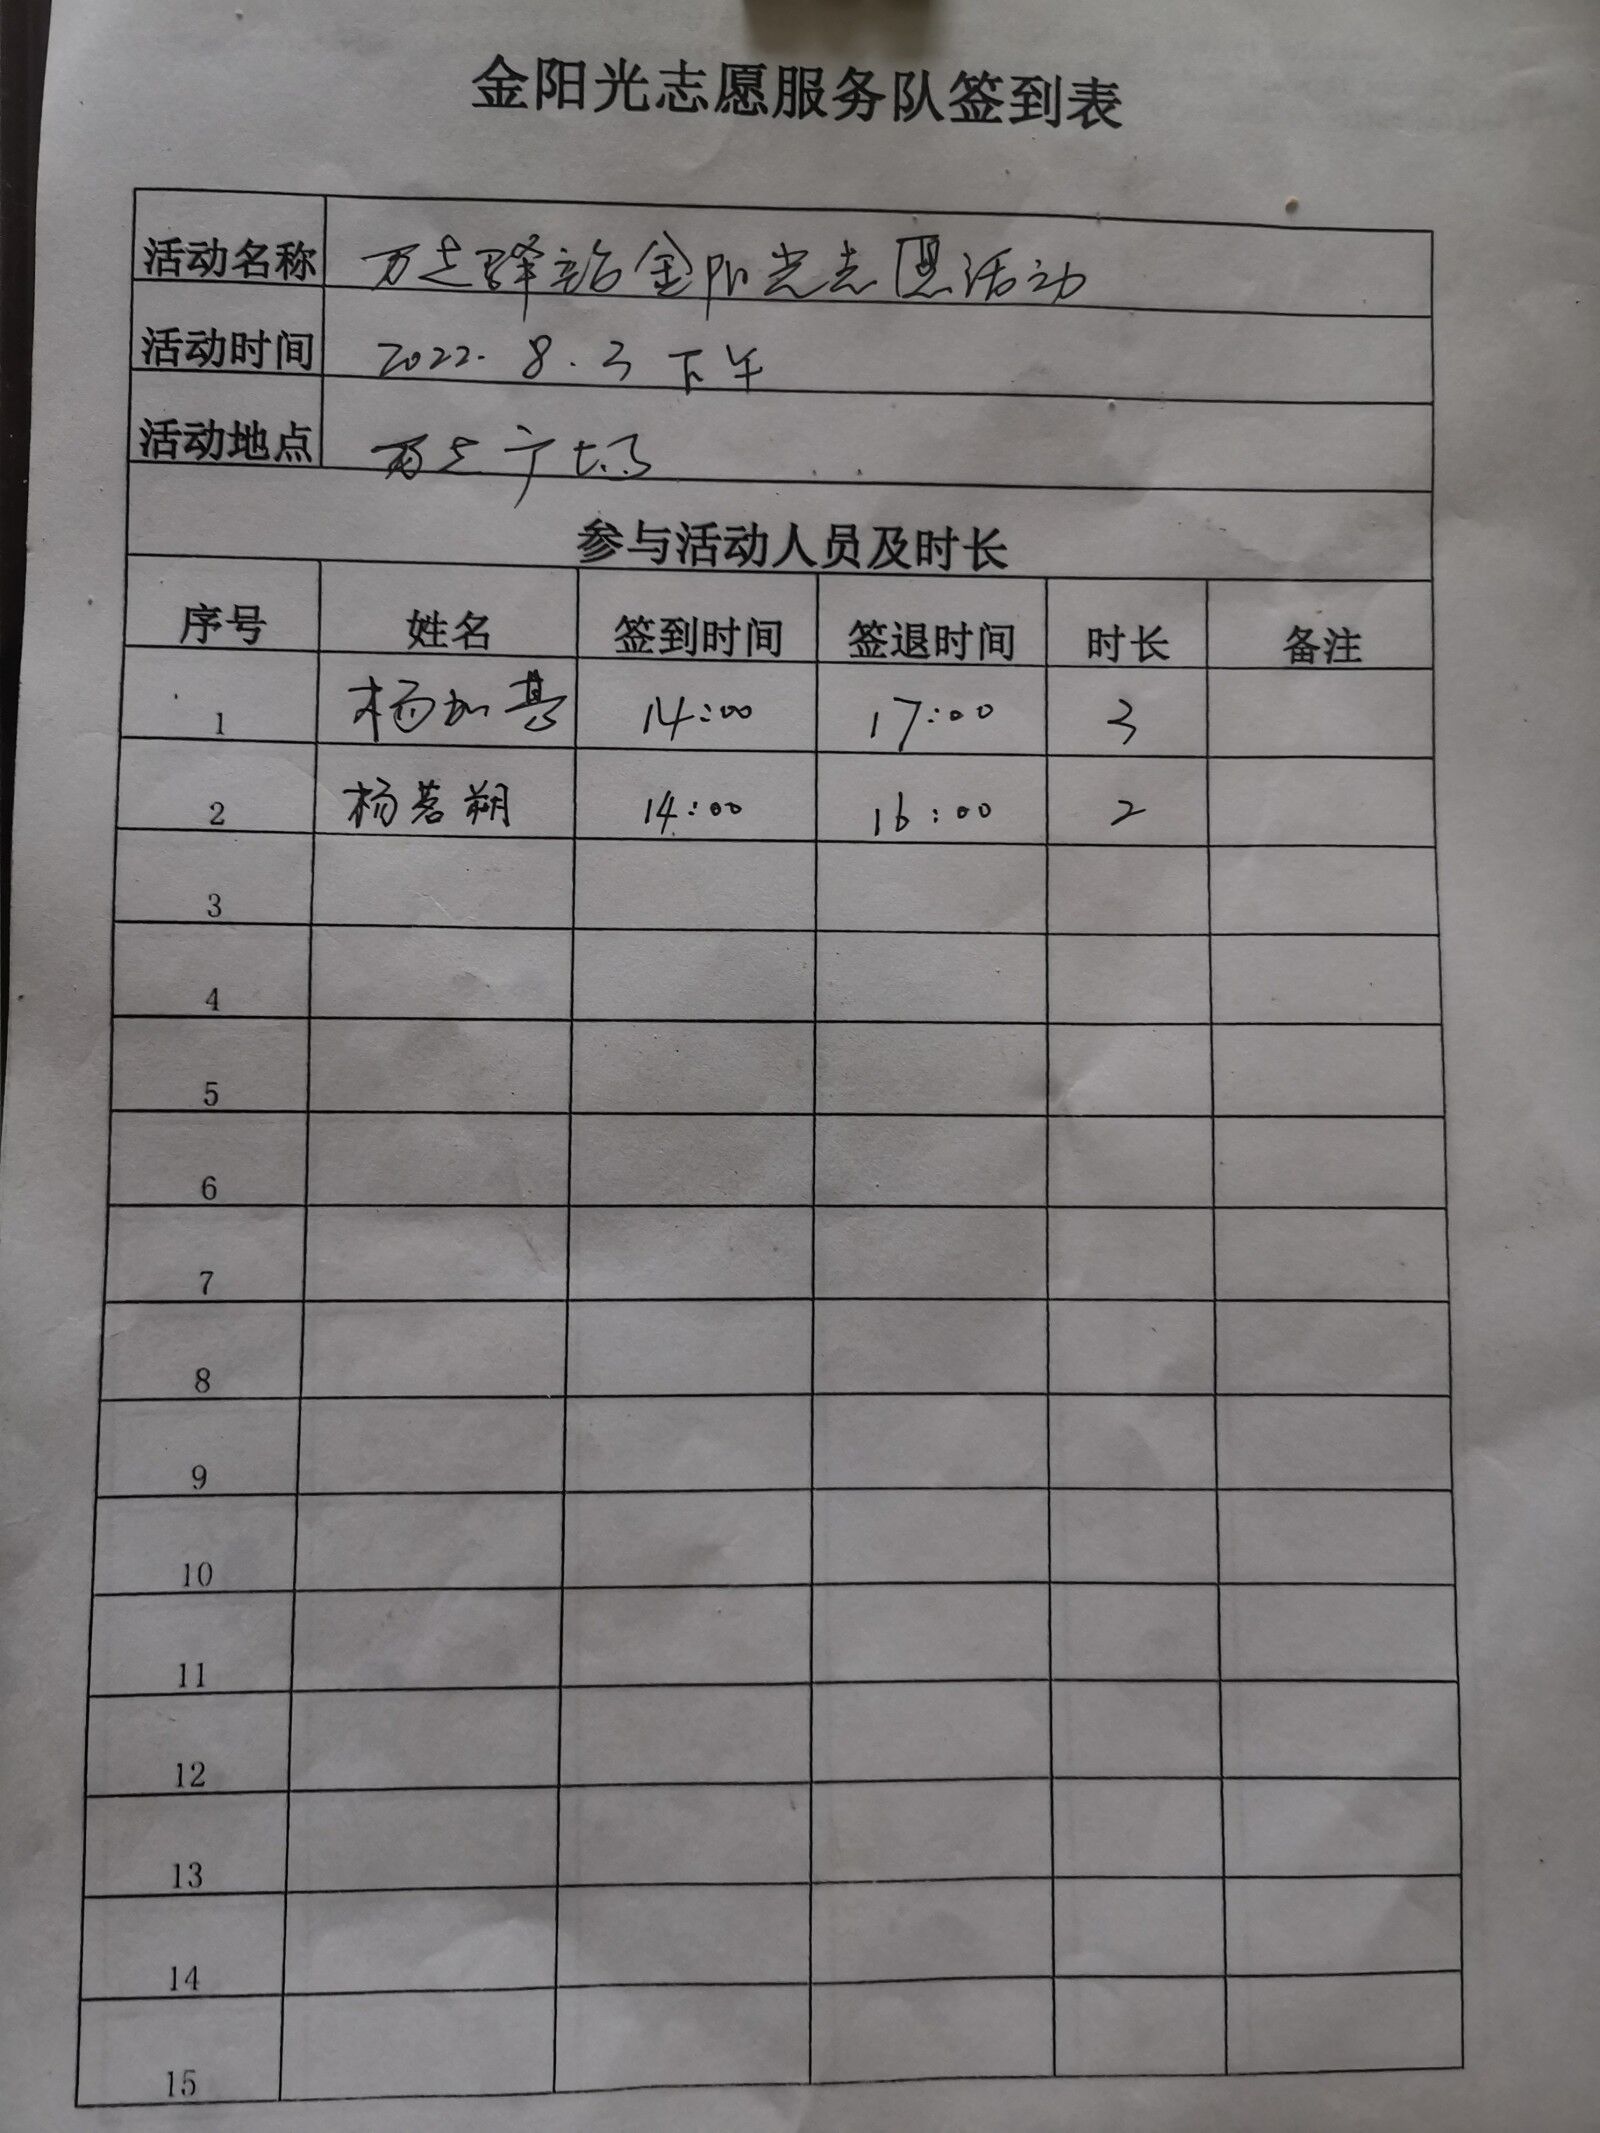 金阳光志愿服务队签到表
活动名称 万达驿站金阳光志愿活动
活动时间 2022.8.3下午
活动地点 万达广场
参与活动人员及时长
序号 姓名 签到时间 签退时间 时长 备注
1 杨加 14:00 17:00 3
2 杨茗朔 14:00 16:00 2
3
4
5
6
7
8
9
10
11
12
13
14
15